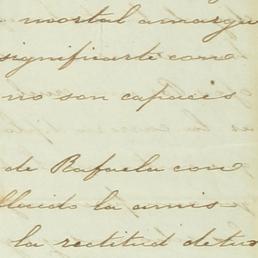 mortal amargu
significarte como
no son capaces
de Rafaela con
llecido la amis
la rectitud de tu